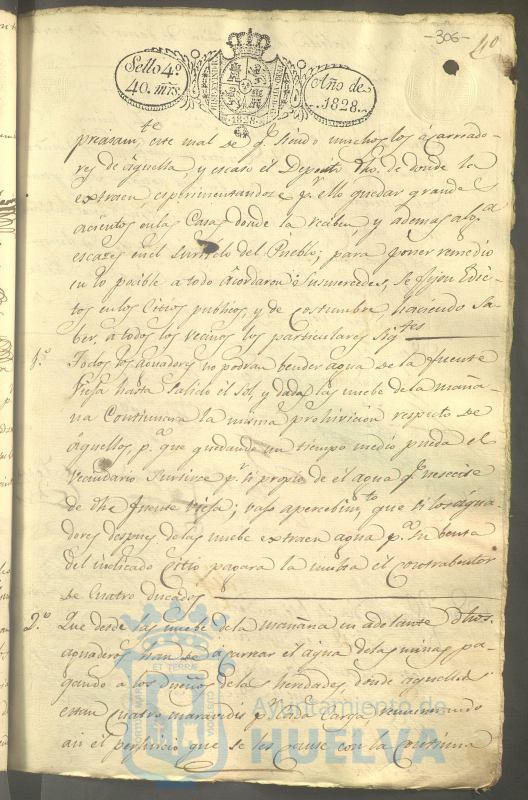 -306-
40
Sello 4º
40. mrs.
Año de
1828.
.1828.
precisam.te este mal de q.e siendo muchos los acarriado-
res de aquella, y escaso el Deposito dho. de donde la
extraen, esperimentandose p.r ello quedar grande
acientos en las Casas donde la reciben, y ademas
escases en el surtido del Pueblo; para poner remedio
en lo posible a todo acordaron sus mercedes, se fijen Edic-
tos en los Citios publicos, y de costumbre, haciendo sa-
ber, a todos los vecinos los particulares Sig.tes
1.º Todos los aguadores no podran bender agua de la fuente
Vieja hasta salido el sol, y dadas las nuebe de la maña-
na Continuara la misma prohivicion respecto de
aquellos, p.a que quedando un tiempo medio pueda el
vecindario surtirse p.r si propio de el agua q.e nesecite
de dha fuente Vieja; vajo apercebim.to que si los agua-
dores despues de las nuebe extraen agua p.a su benta
del indicado Citio pagara la multa el contrabentor
de Cuatro ducados
2.º Que desde las nuebe de la mañana en adelante dhos.
aguadores han de acarrear el agua de las minas pa-
gando a los dueños de las heredades, donde aquellas
estan Cuatro maravedis p.r cada Carga remunerando
asi el perjuicio que se les cause con la continua
Ayuntamiento de
HUELVA